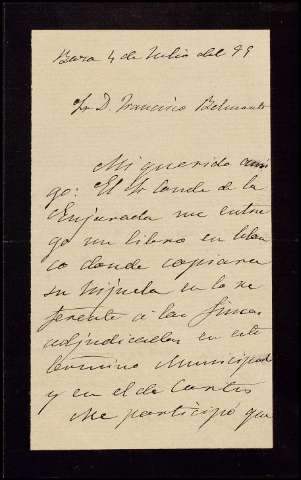 Baza 4 de Julio del 99
Sr D. Francisco Belmonte
Mi querido ami
go: El Sr Conde de la
Enjarada me entre
go un libro en blan
co donde copiara
su hijuela en lo re
ferente á las fincas
adjudicadas en este
termino Municipal
y en el de Cortes
Me participó que